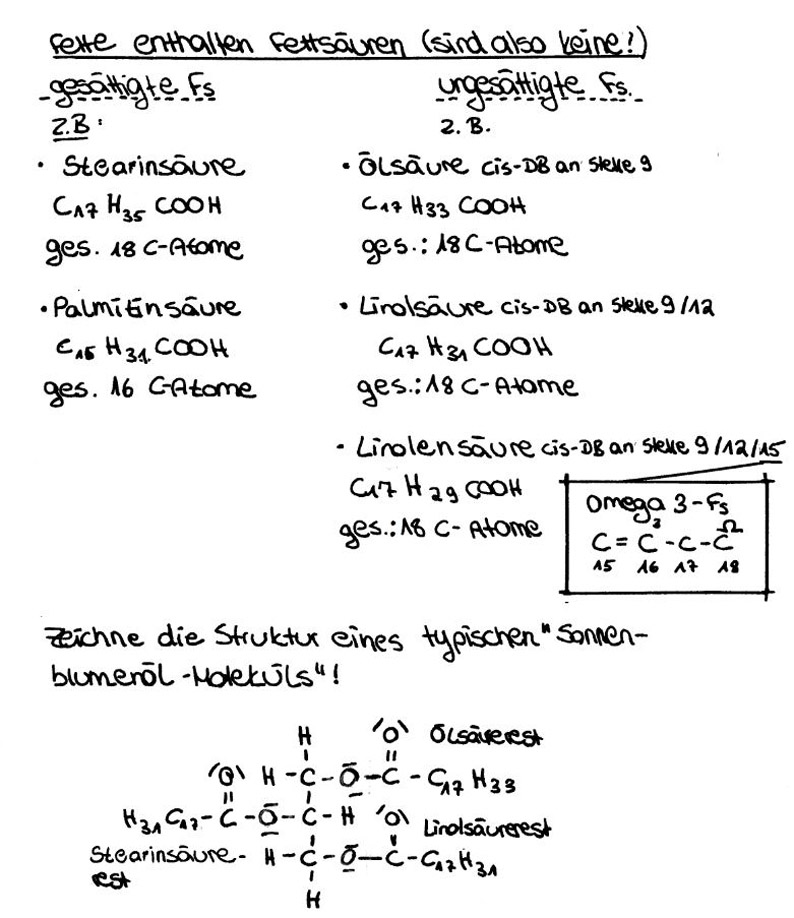 Fette enthalten Fettsäuren (sind also keine!)
gesättigte Fs
z.B:
• Stearinsäure
C17 H35 COOH
ges. 18 C-Atome
• Palmitinsäure
C15 H31 COOH
ges. 16 C-Atome
ungesättigte Fs.
z.B.
• Ölsäure cis-DB an Stelle 9
C17 H33 COOH
ges.: 18 C-Atome
• Linolsäure cis-DB an Stelle 9/12
C17 H31 COOH
ges.: 18 C-Atome
• Linolensäure cis-DB an Stelle 9/12/15
C17 H29 COOH
ges.: 18 C-Atome
Omega 3-Fs
3 Ω
C = C - C - C
15 16 17 18
Zeichne die Struktur eines typischen "Sonnen-
blumenöl-Moleküls"!
H 'O' Ölsäurerest
'O' H - C - O - C - C17 H33
H31 C17 - C - O - C - H 'O' Linolsäurerest
Stearinsäure- H - C - O - C - C17 H31
rest
H